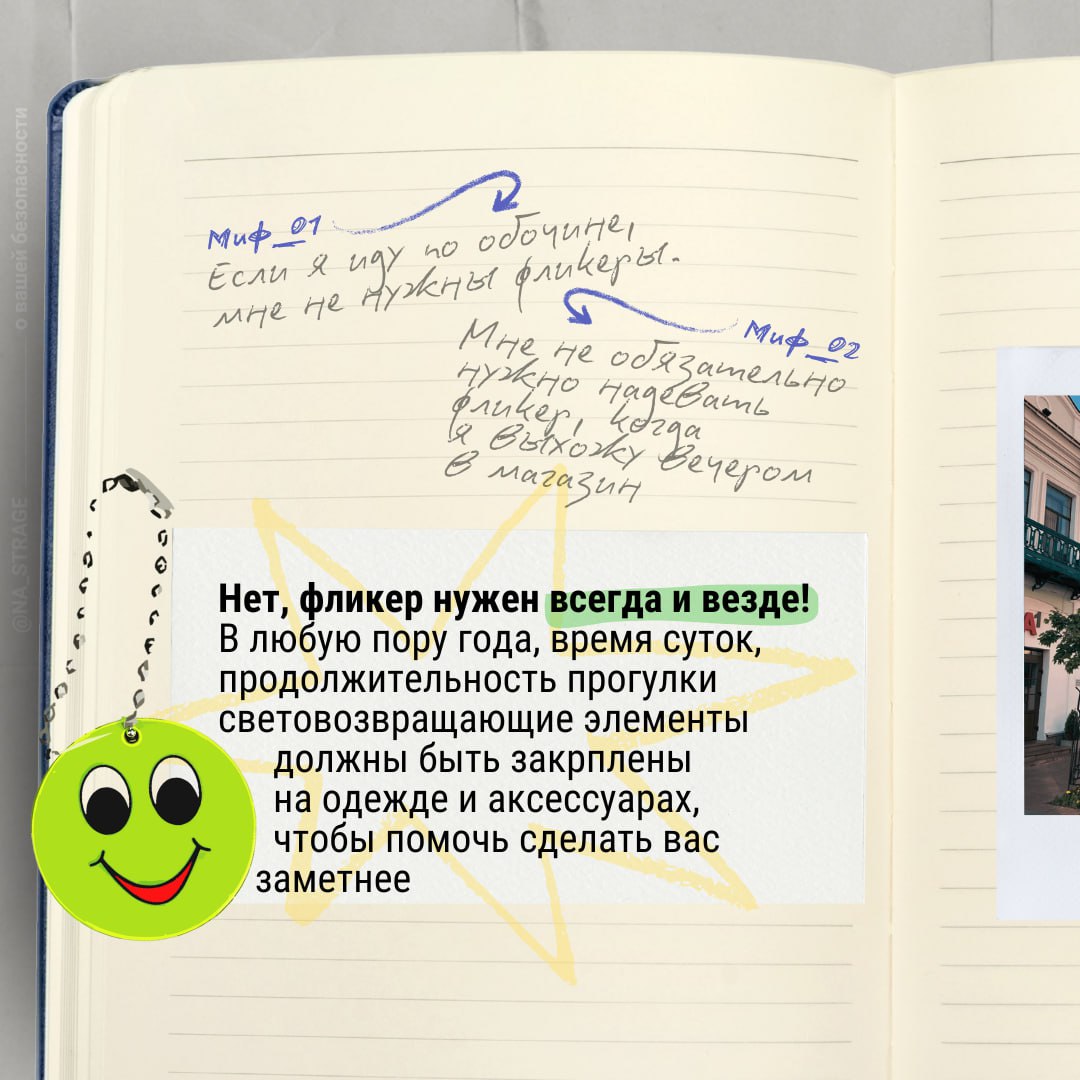 о вашей безопасности
@NA_STRAGE
Миф_01
Если я иду по обочине,
мне не нужны фликеры.
Миф_02
Мне не обязательно
нужно надевать
фликер, когда
я выхожу вечером
в магазин
Нет, фликер нужен всегда и везде!
В любую пору года, время суток,
продолжительность прогулки
световозвращающие элементы
должны быть закрплены
на одежде и аксессуарах,
чтобы помочь сделать вас
заметнее
А1